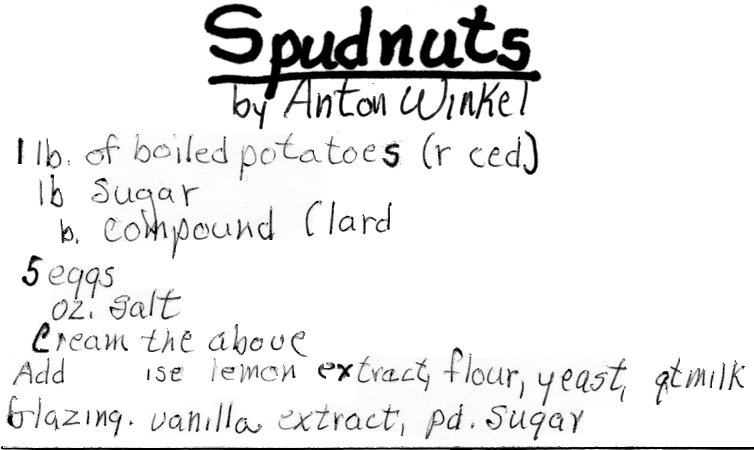 Spudnuts
by Anton Winkel
1 lb. of boiled potatoes (r ced)
lb sugar
b. compound (lard
5 eggs
oz. salt
Cream the above
Add ise lemon extract, flour, yeast, qt milk
Glazing. vanilla extract, pd. sugar